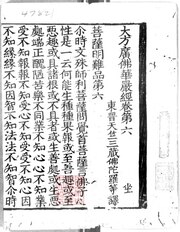 大方廣佛華嚴經卷第六 坐
東晉天竺三藏佛陀跋陀羅等譯
菩薩明難品第六
尒時文殊師利菩薩問覺首菩薩言佛子心
性是一云何能生種種果報或至善趣或至
惡趣或具諸根或不具者或生善處或生惡
處端正醜陋苦樂不同業不知心心不知業
受不知報報不知受心不知受受不知心因
不知緣緣不知因智不知法法不知智